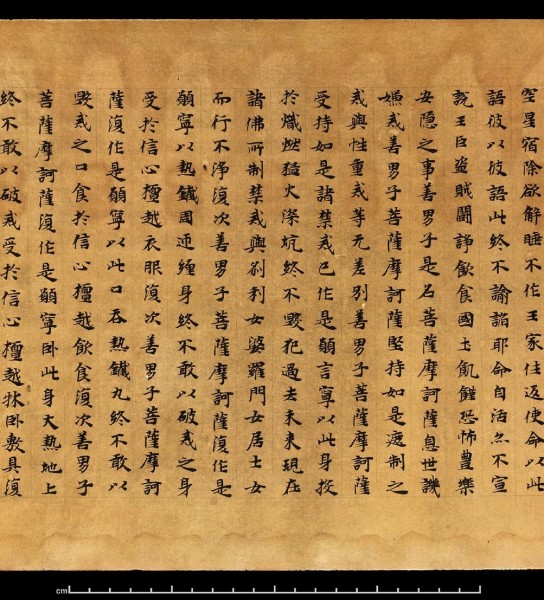 空星宿除欲解睡不作王家往返使命以此
語彼以彼語此終不諭諂耶命自活亦不宣
說王臣盜賊鬪諍飲食國土飢饉恐怖豊樂
安隐之事善男子是名菩薩摩訶薩息世譏
嫌戒善男子菩薩摩訶薩堅持如是遮制之
戒與性重戒等无差别善男子菩薩摩訶薩
受持如是諸禁戒已作是願言寧以此身投
於熾燃猛火深坑終不毀犯過去未來現在
諸佛所制禁戒與刹利女婆羅門女居士女
而行不净復次善男子菩薩摩訶薩復作是
願寧以熱鐵周迊纏身終不敢以破戒之身
受於信心檀越衣服復次善男子菩薩摩訶
薩復作是願寧以此口吞熱鐵丸終不敢以
毀戒之口食於信心檀越飲食復次善男子
菩薩摩訶薩復作是願寧卧此身大熱地上
終不敢以破戒受於信心檀越牀卧敷具復
cm